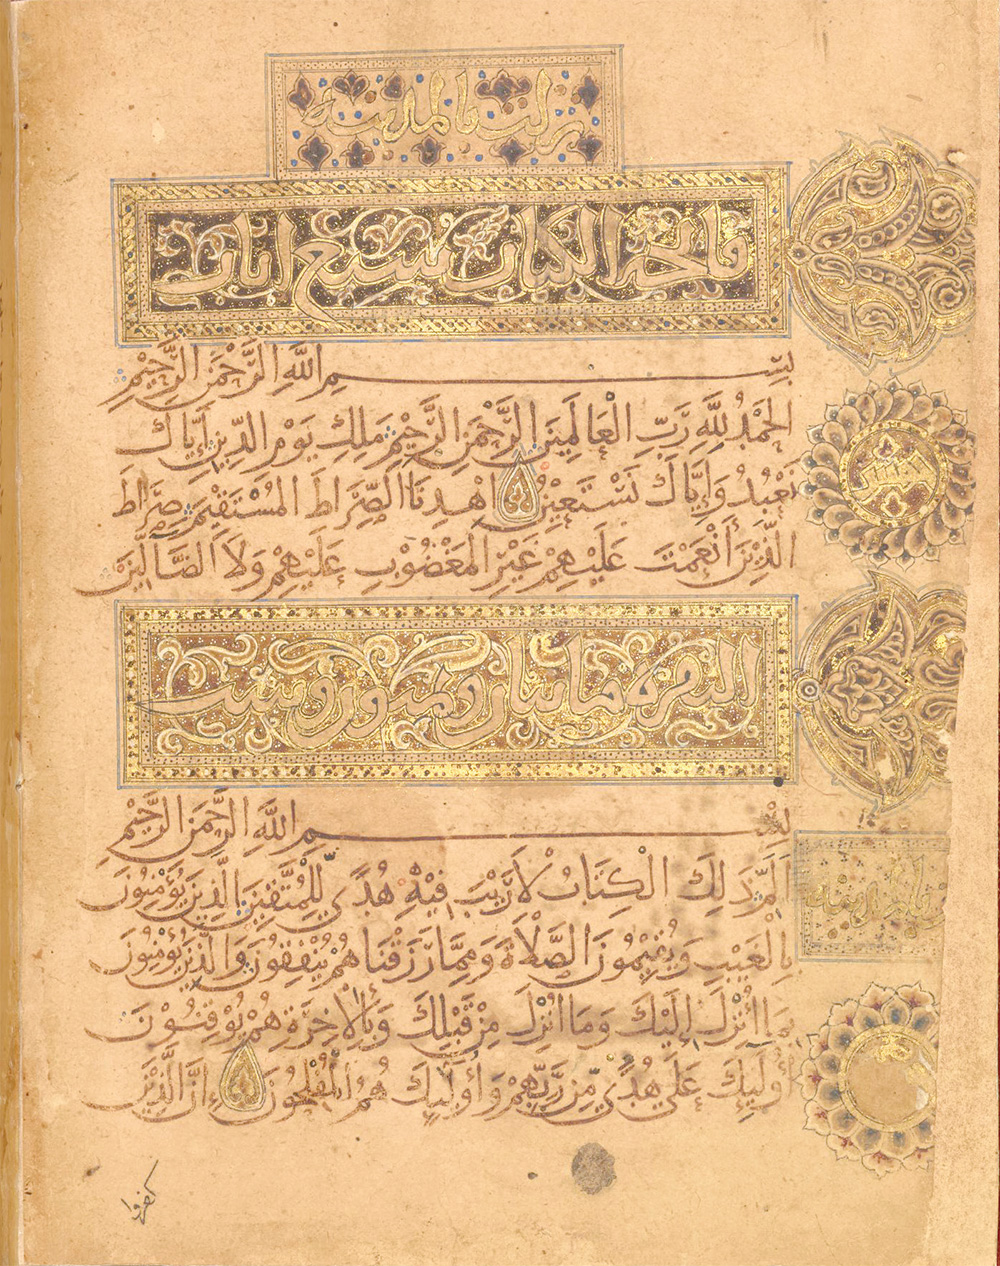 نزلت بالمدينة
فاتحة الكتاب سبع ايات
بِسْمِ اللَّهِ الرَّحْمَنِ الرَّحِيْمِ
الحَمْدُ لِلَّهِ رَبِّ الْعَالَمِيْنَ الرَّحْمَنِ الرَّحِيْمِ مَلِكِ يَوْمِ الدِّينِ إِيَّاكَ
نَعْبُدُ وَإِيَّاكَ نَسْتَعِيْنُ اهْدِنَا الصِّرَاطَ المُسْتَقِيْمَ صِرَاطَ
الَّذِيْنَ أَنْعَمْتَ عَلَيْهِمْ غَيْرِ الْمَغْضُوْبِ عَلَيْهِمْ وَلَا الضَّالِّيْنَ
البقرة مايتان وثمنون وست
بِسْمِ اللَّهِ الرَّحْمَنِ الرَّحِيْمِ
الَمّ ذَلِكَ الْكِتَابُ لَا رَيْبَ فِيْهِ هُدًى لِلْمُتَّقِيْنَ الَّذِيْنَ يُؤْمِنُوْنَ
بِالْغَيْبِ وَيُقِيْمُوْنَ الصَّلَاةَ وَمِمَّا رَزَقْنَاهُمْ يُنْفِقُوْنَ وَالَّذِيْنَ يُؤْمِنُوْنَ
بِمَا أُنْزِلَ إِلَيْكَ وَمَا أُنْزِلَ مِنْ قَبْلِكَ وَبِالْآخِرَةِ هُمْ يُوْقِنُوْنَ
أُولَئِكَ عَلَى هُدًى مِنْ رَبِّهِمْ وَأُولَئِكَ هُمُ الْمُفْلِحُوْنَ إِنَّ الَّذِيْنَ
كفروا